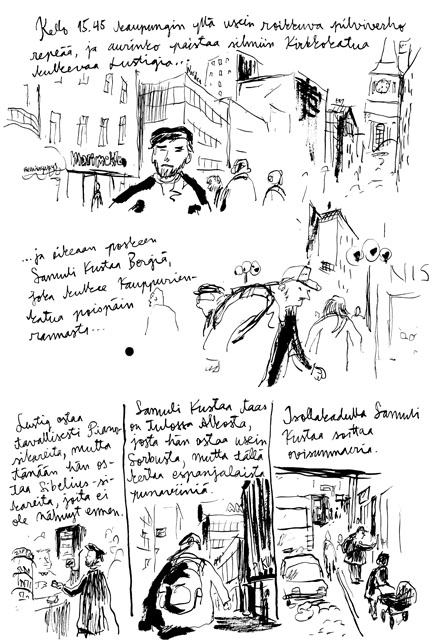 Kello 15.45 kaupungin yllä usein roikkuva pilviverho
repeää, ja aurinko paistaa silmiin Kirkkokatua
kulkevaa Lustigia...
Marimekko
...ja oikeaan poskeen
Samuli Kustaa Bergiä,
joka kulkee Kauppurien-
katua poispäin
rannasta...
NIS
Lustig ostaa
tavallisesti Piano-
sikareita, mutta
tänään hän os-
taa Sibelius-si-
kareita, joita ei
ole nähnyt ennen.
Samuli Kustaa taas
on tulossa Alkosta,
josta hän ostaa usein
Sorbusta, mutta tällä
kertaa espanjalaista
punaviiniä.
Isollakadulla Samuli
Kustaa soittaa
ovisummeria.